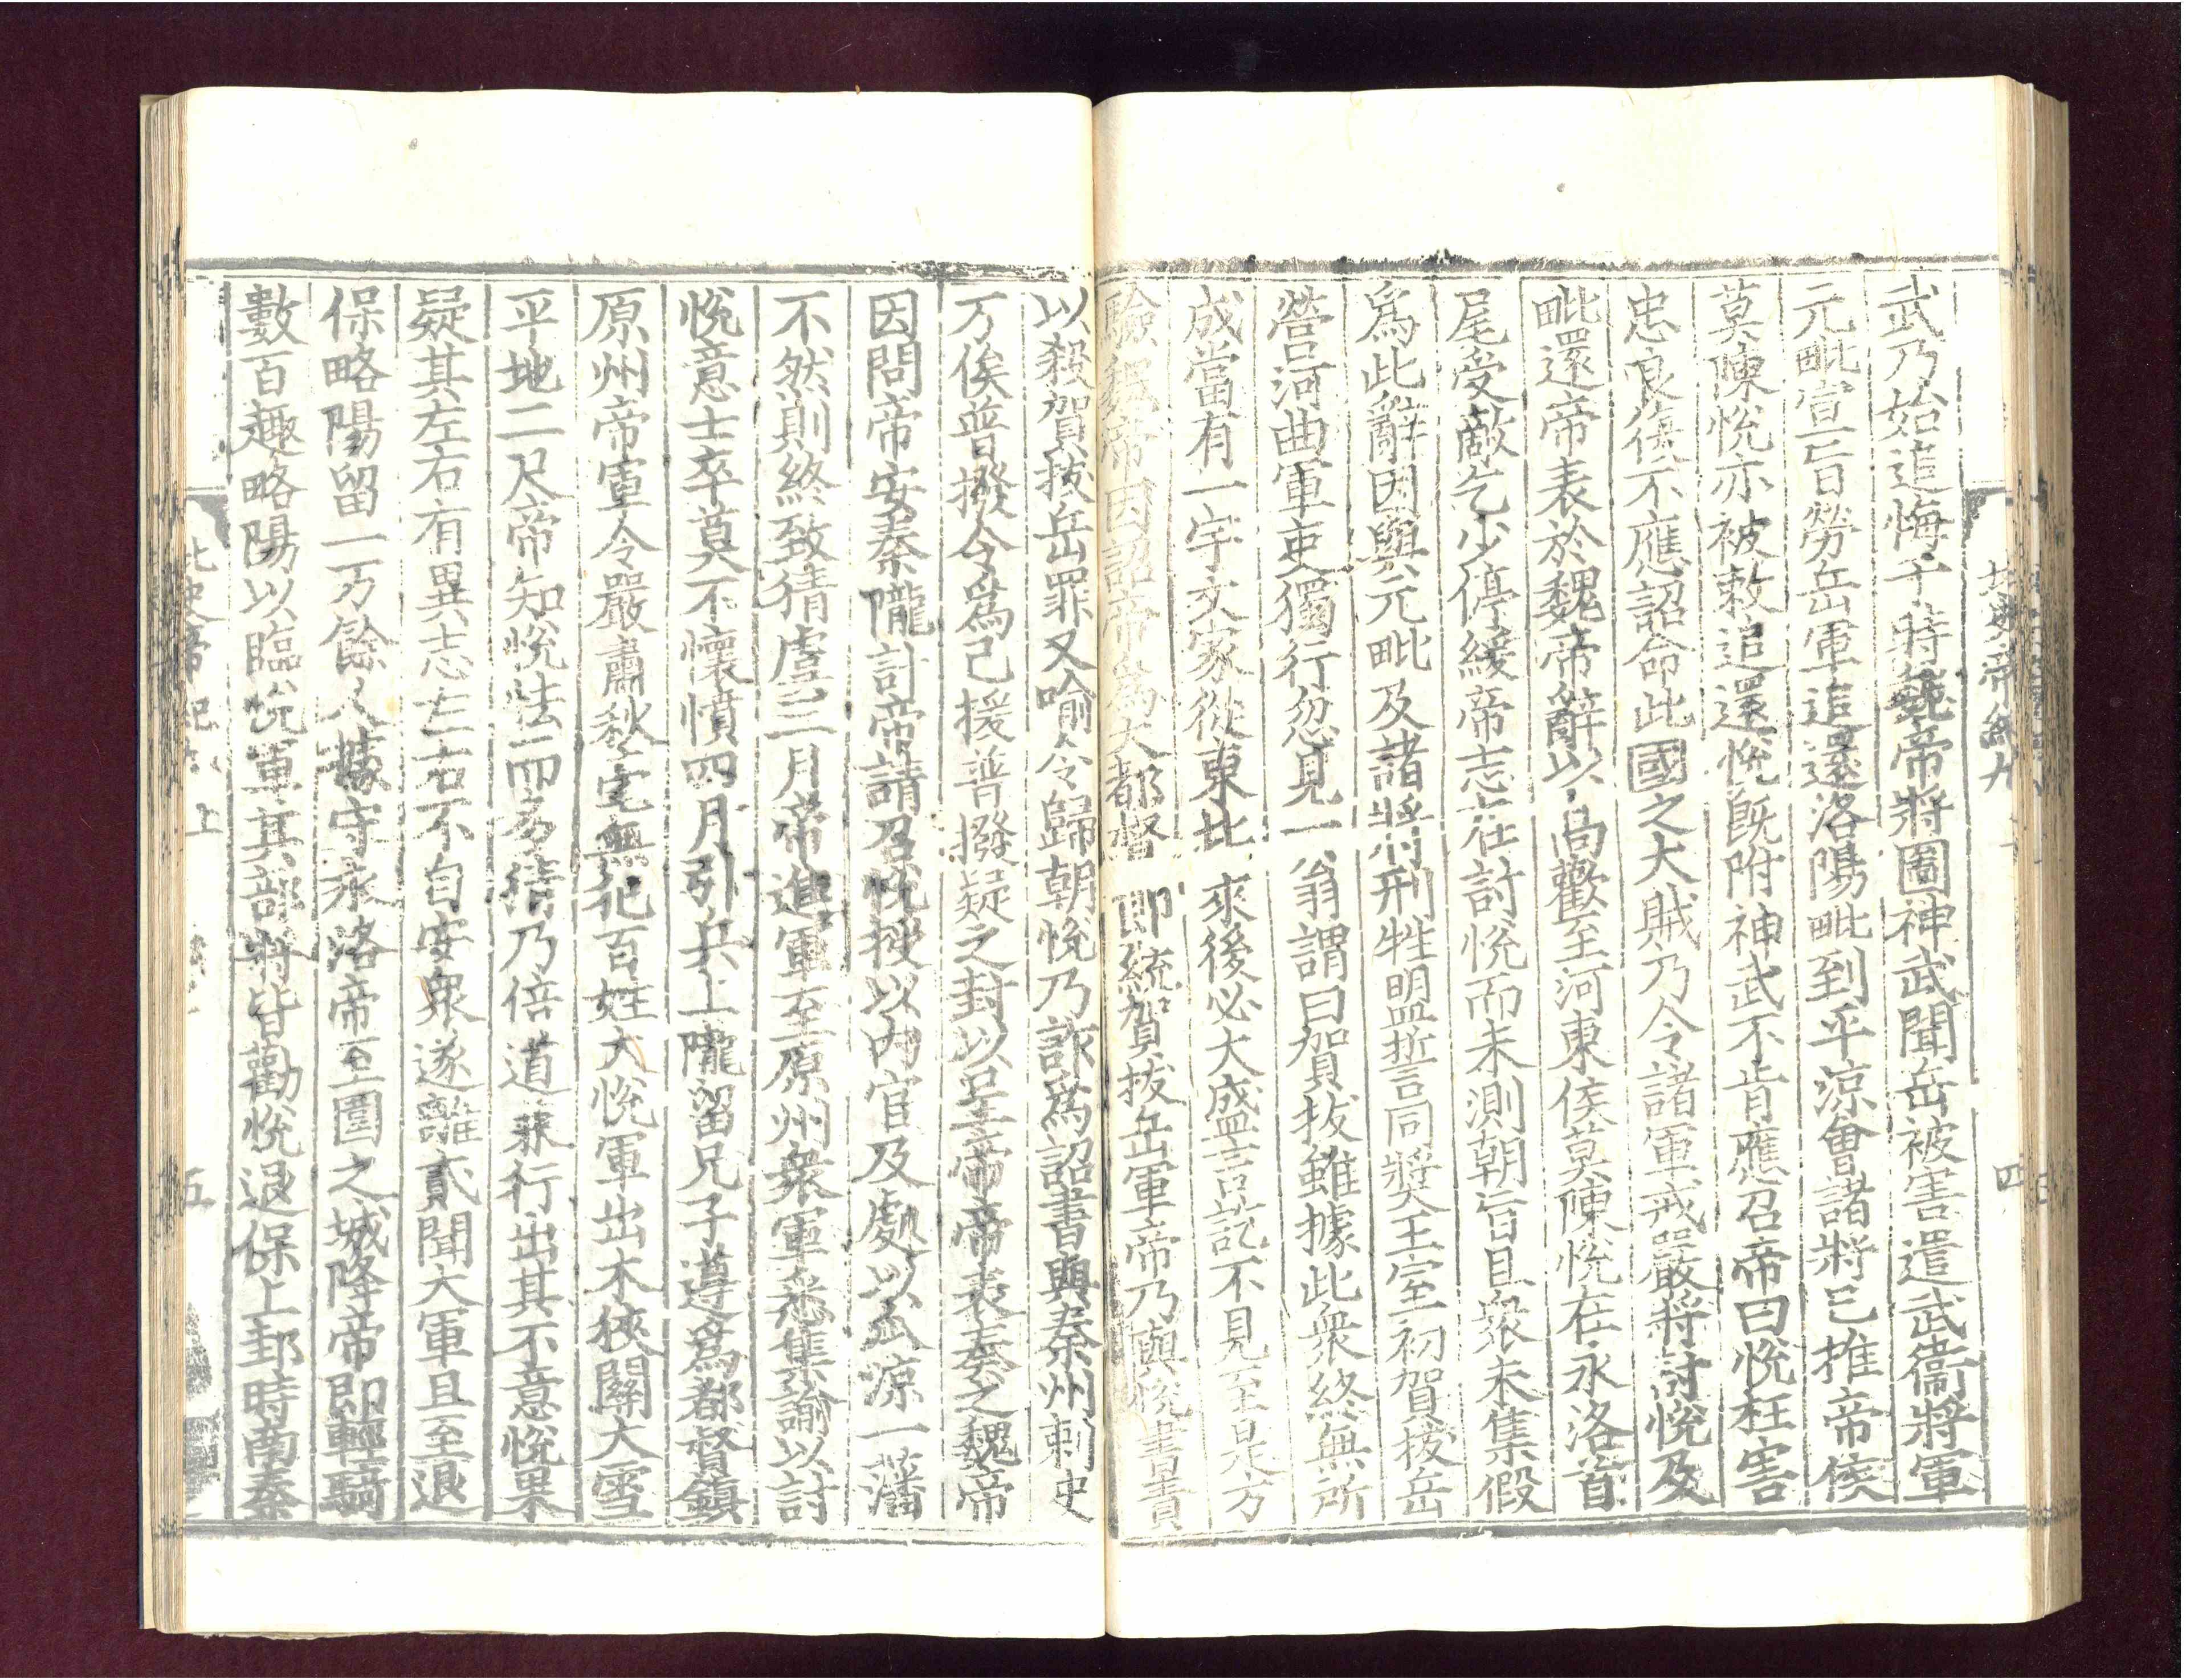 武乃始追悔于時魏帝將圖神武聞岳被害遣武衞將軍
元毗宣旨勞岳軍追還洛陽毗到平涼會諸將已推帝侯
莫陳悅亦被敕追還悅既附神武不肯應召帝曰悅枉害
忠良復不應詔命此國之大賊乃令諸軍戒嚴將討悅及
毗還帝表於魏帝辭以高歡至河東侯莫陳悅在永洛首
尾受敵乞少停緩帝志在討悅而未測朝旨且衆未集假
爲此辭因與元毗及諸將刑牲盟誓同奬王室初賀拔岳
營河曲軍吏獨行忽見一翁謂曰賀拔雖據此衆終無所
成當有一宇文家從東北來後必大盛言訖不見至是方
驗魏帝因詔帝爲大都督即統賀拔岳軍帝乃與悅書責
以殺賀拔岳罪又喻令歸朝悅乃詐爲詔書與秦州刺史
万俟普撥令爲己援普撥疑之封以呈帝帝表奏之魏帝
因問帝安秦隴計帝請召悅授以內官及處以瓜涼一藩
不然則終致猜虞三月帝進軍至原州衆軍悉集諭以討
悅意士卒莫不懷憤四月引兵上隴留兄子導爲都督鎮
原州帝軍令嚴肅秋毫無犯百姓大悅軍出木狹關大雪
平地二尺帝知悅怯而多猜乃倍道兼行出其不意悅果
疑其左右有異志左右不自安衆遂離貳聞大軍且至退
保略陽留一万餘人據守永洛帝至圍之城降帝即輕騎
數百趣略陽以臨悅軍其部將皆勸悅退保上邽時南秦
北史帝紀九 上 五